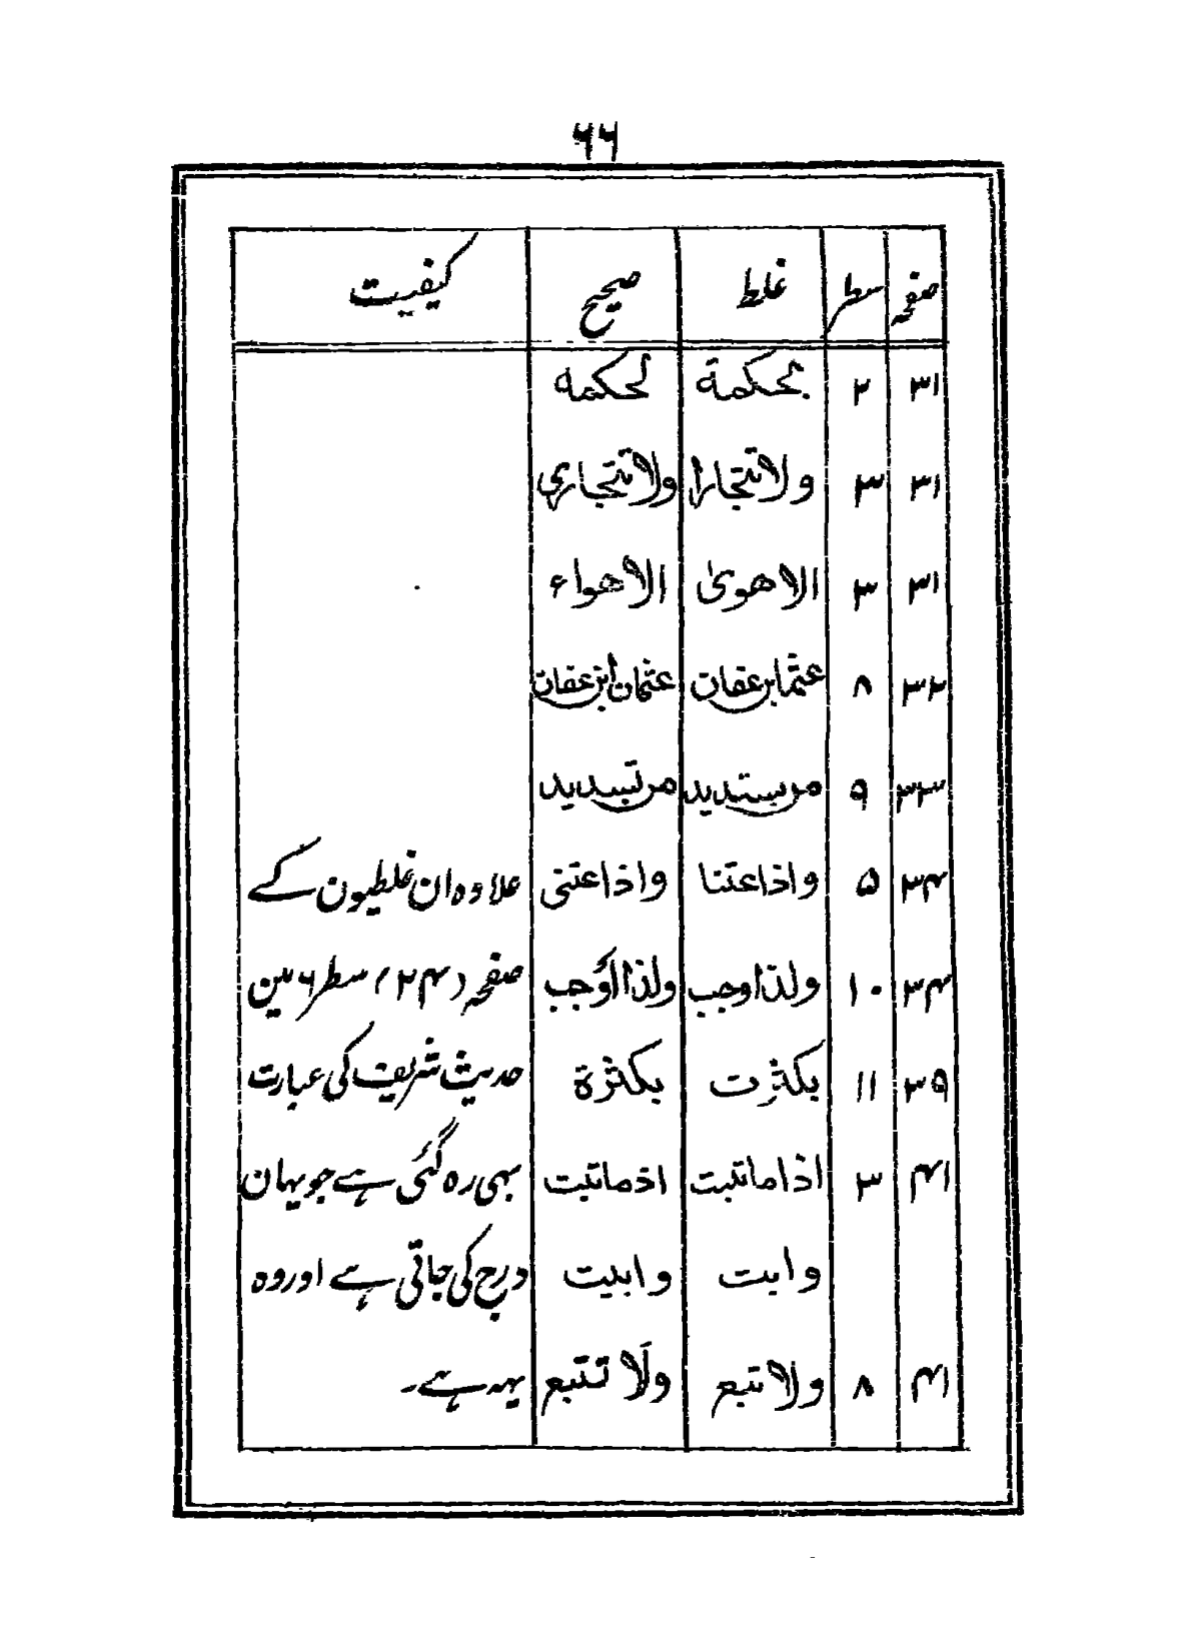 ۶۶
صفحہ سطر غلط صحیح کیفیت
۳۱ ۲ بحکمة لحکمه
۳۱ ۳ ولاتتجارا ولاتتجاری
۳۱ ۳ الاهویٰ الاهواء
۳۲ ۸ عثمابن عفان عثمان ابن عفان
۳۳ ۹ من بستدید من تبسدید
۳۴ ۵ واذاعتنا واذاعتنی علاوہ ان غلطیون کے
۳۴ ۱۰ ولذاوجب ولذا اوجب صفحہ (۲۴) سطر ۶ مین
۳۹ ۱۱ بکثرت بکثرة حدیث شریف کی عبارت
۴۱ ۳ اذاماتبت اذماتبت بہی رہ گئی ہے جو یہان
وابت وابیت درج کی جاتی ہے اور وہ
۴۱ ۸ ولاتبع ولا تتبع یہہ ہے۔